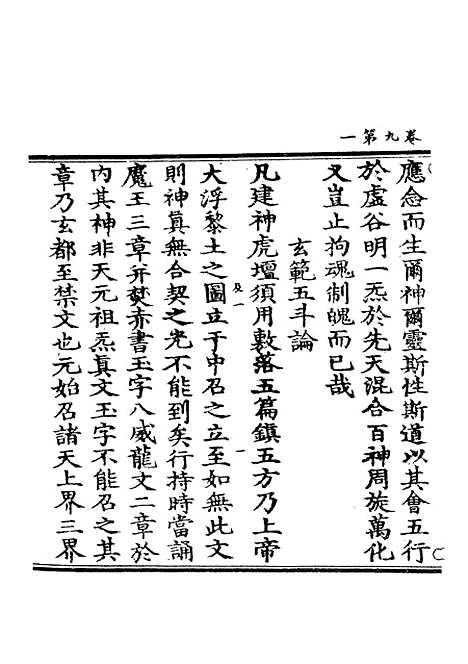 卷九第一
應念而生爾神爾靈斯性斯道以其會五行
於虛谷明一炁於先天混合百神周旋萬化
又豈止拘魂制魄而已哉
玄範五斗論
凡建神虎壇須用敷落五篇鎮五方乃上帝
大浮黎土之圖立于中召之立至如無此文
則神真無合契之光不能到矣行持時當誦
魔王三章并焚赤書玉字八威龍文二章於
內其神非天元祖炁真文玉字不能召之其
章乃玄都至禁文也元始召諸天上界三界